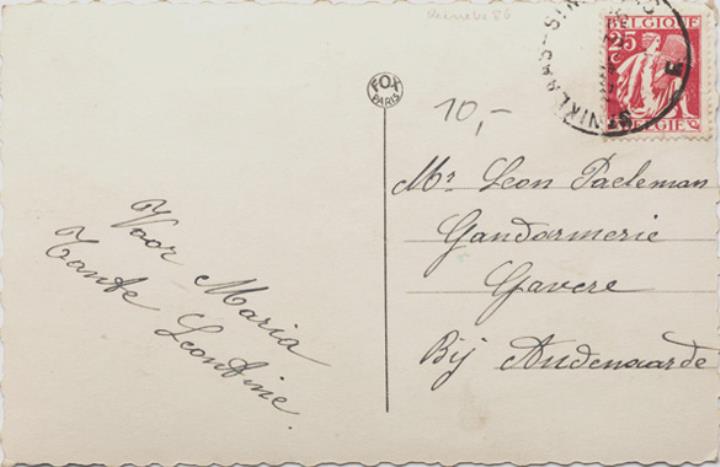 FOX
PARIS
10,-
BELGIQUE
25
BELGIE
ST NIKLAAS
Voor Maria
Tante Leontine.
Mr Leon Paeleman
Gandarmerie
Gavere
Bij Audenaarde